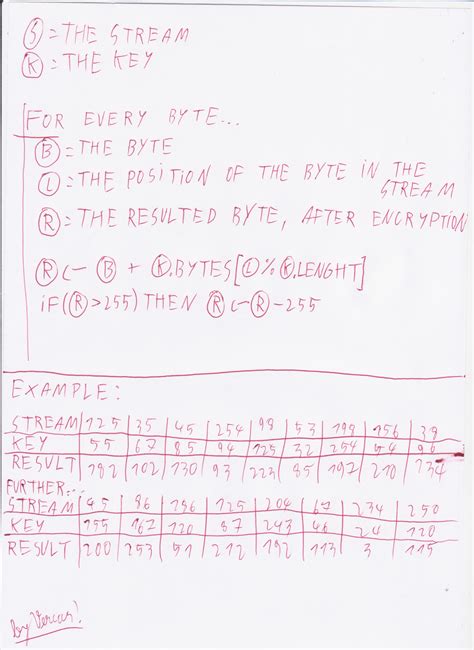 Ⓢ = THE STREAM
Ⓚ = THE KEY
FOR EVERY BYTE...
Ⓑ = THE BYTE
Ⓛ = THE POSITION OF THE BYTE IN THE
STREAM
Ⓡ = THE RESULTED BYTE, AFTER ENCRYPTION
Ⓡ <- Ⓑ + Ⓚ.BYTES[Ⓛ%Ⓚ.LENGHT]
iF(Ⓡ>255) THEN Ⓡ<-Ⓡ-255
EXAMPLE:
STREAM 125 35 45 254 98 53 198 156 38
KEY 55 67 85 94 125 32 254 54 96
RESULT 182 102 130 93 223 85 197 210 134
FURTHER...
STREAM 45 86 186 125 204 67 234 250
KEY 155 167 120 87 243 46 24 120
RESULT 200 253 51 212 192 113 3 115
by Vercas!